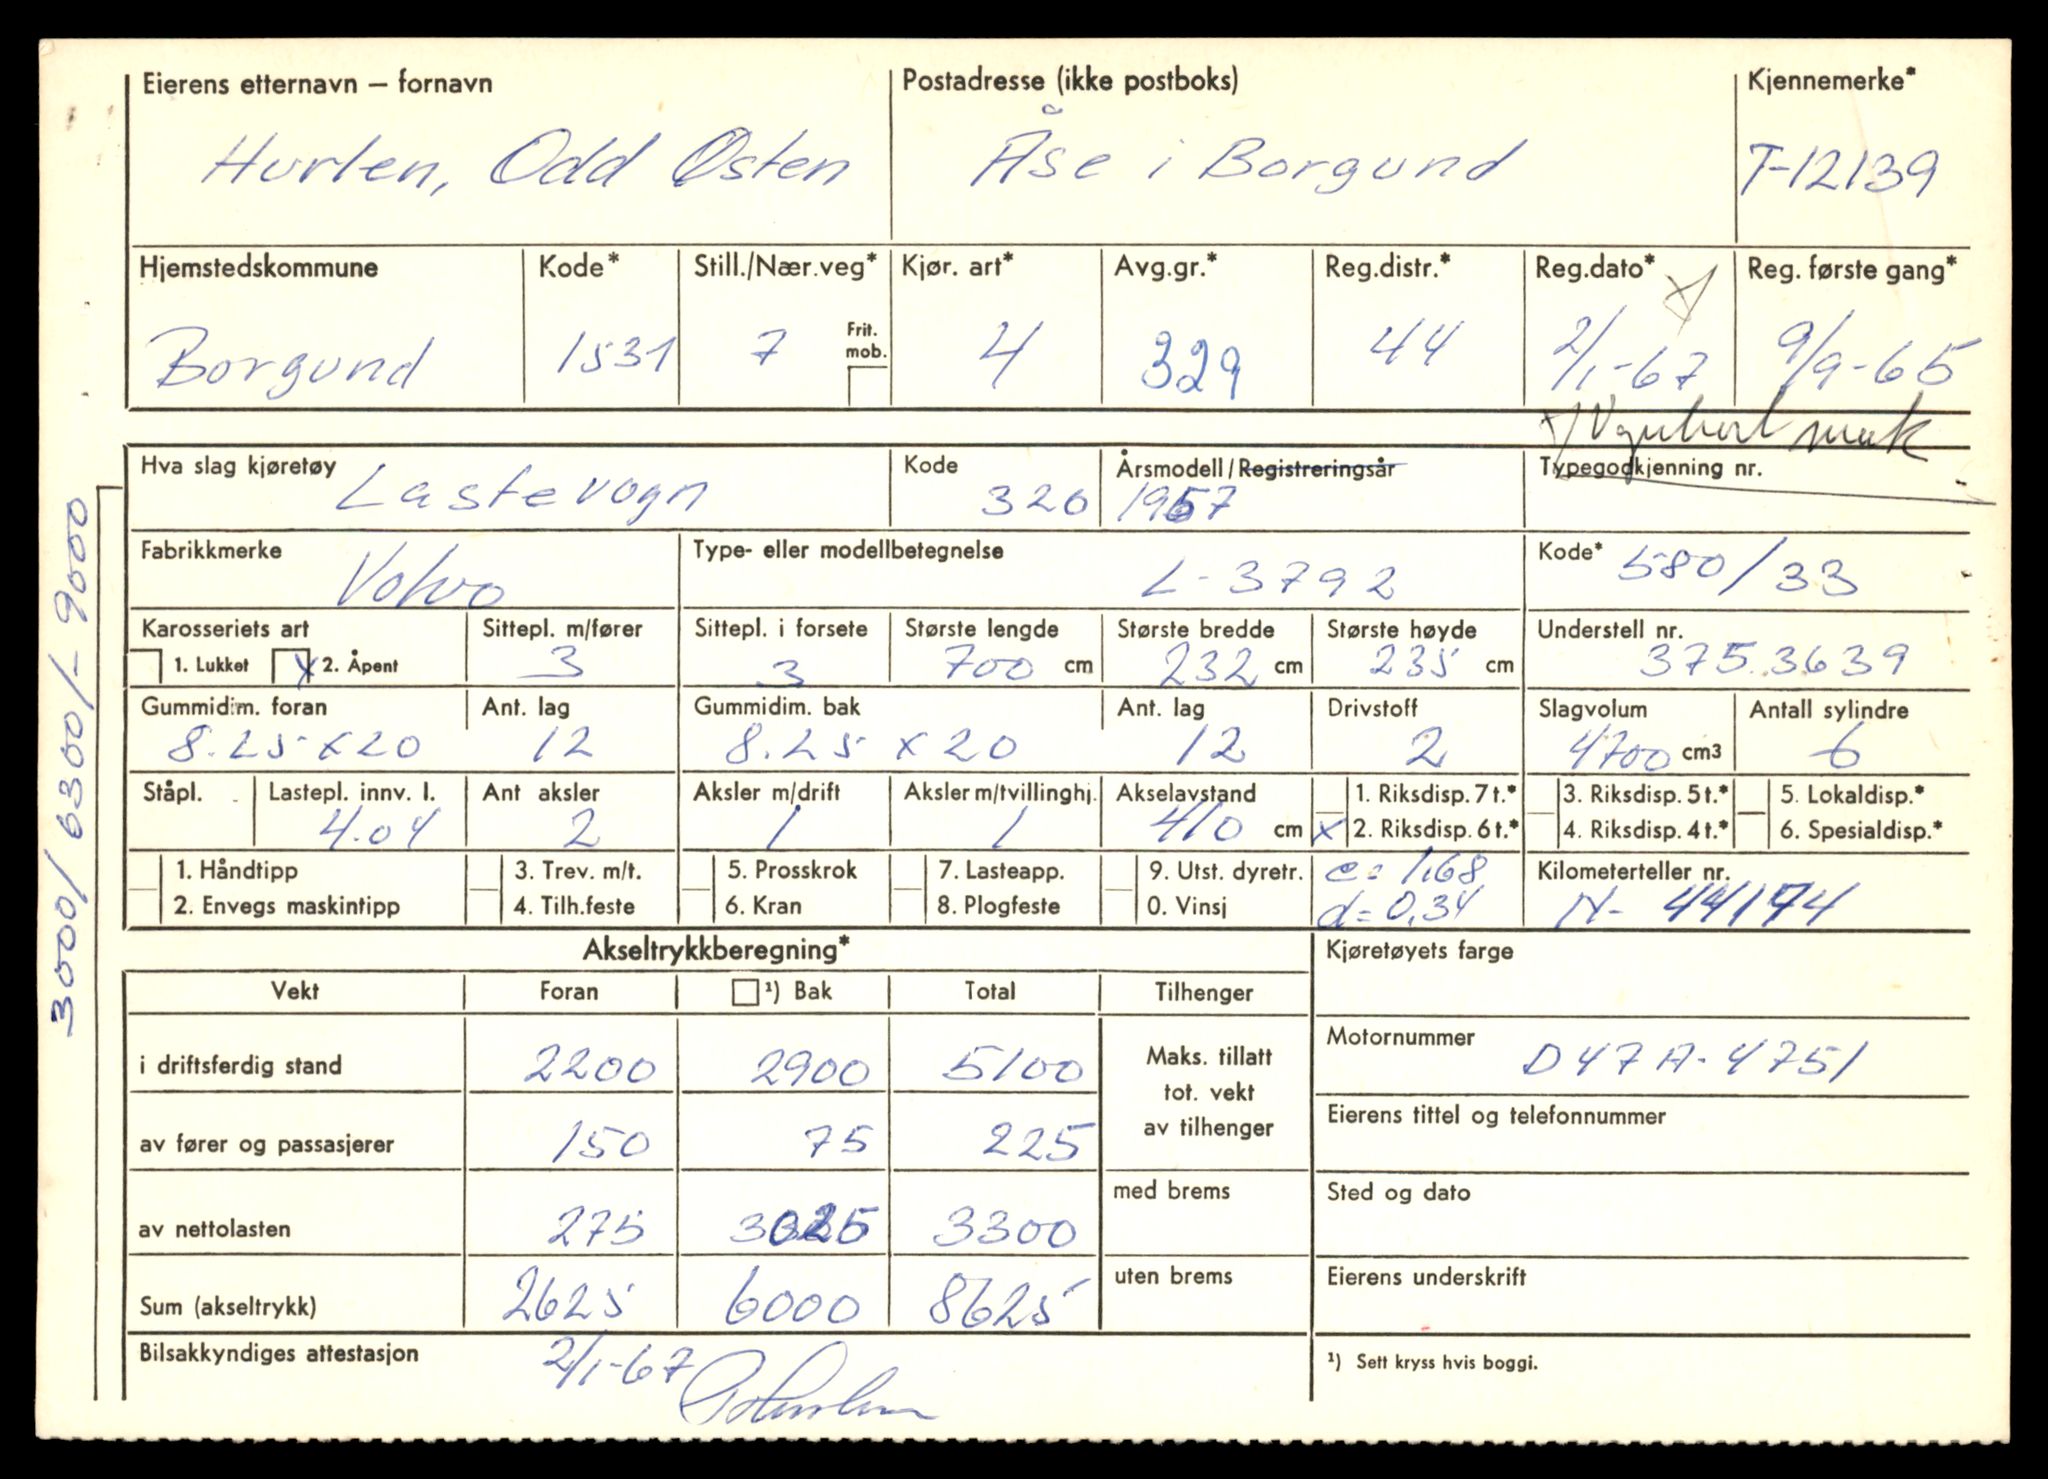 Eierens etternavn – fornavn Postadresse (ikke postboks) Kjennemerke*
Hurlen, Odd Østen Åse i Borgund T-12139
Hjemstedskommune Kode* Still./Nær.veg* Kjør. art* Avg.gr.* Reg.distr.* Reg.dato* Reg. første gang*
Borgund 1531 7 Frit. mob. 4 329 44 2/1-67 9/9-65
Hva slag kjøretøy Kode Årsmodell/Registreringsår Typegodkjenning nr.
Lastevogn 320 1967
Fabrikkmerke Type- eller modellbetegnelse Kode*
Volvo L-3792 580/33
Karosseriets art Sittepl. m/fører Sittepl. i forsete Største lengde Største bredde Største høyde Understell nr.
1. Lukket x 2. Åpent 3 3 700 cm 232 cm 235 cm 375.3639
Gummidim. foran Ant. lag Gummidim. bak Ant. lag Drivstoff Slagvolum Antall sylindre
8.25 x 20 12 8.25 x 20 12 2 4700 cm3 6
Ståpl. Lastepl. innv. l. Ant aksler Aksler m/drift Aksler m/tvillinghj. Akselavstand 1. Riksdisp. 7 t.* 3. Riksdisp. 5 t.* 5. Lokaldisp.*
4.04 2 1 1 410 cm x 2. Riksdisp. 6 t.* 4. Riksdisp. 4 t.* 6. Spesialdisp.*
1. Håndtipp 3. Trev. m/t. 5. Prosskrok 7. Lasteapp. 9. Utst. dyretr. e = 1,68 Kilometerteller nr.
2. Envegs maskintipp 4. Tilh.feste 6. Kran 8. Plogfeste 0. Vinsj d = 0,34 N- 44174
Akseltrykkberegning* Kjøretøyets farge
Vekt Foran ¹) Bak Total Tilhenger
i driftsferdig stand 2200 2900 5100 Maks. tillatt tot. vekt av tilhenger
Motornummer D47A-4751
Eierens tittel og telefonnummer
av fører og passasjerer 150 75 225
av nettolasten 275 3025 3300 med brems Sted og dato
Sum (akseltrykk) 2625 6000 8625 uten brems Eierens underskrift
Bilsakkyndiges attestasjon 2/1-67 ¹) Sett kryss hvis boggi.
3000/6300/- 9000